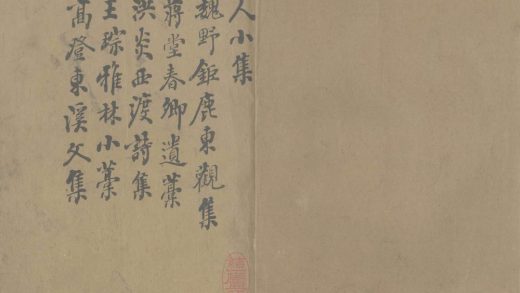 人小集
魏野鉅鹿東觀集
蔣堂春卿遺藁
洪炎西渡詩集
王琮雅林小藁
高登東溪文集